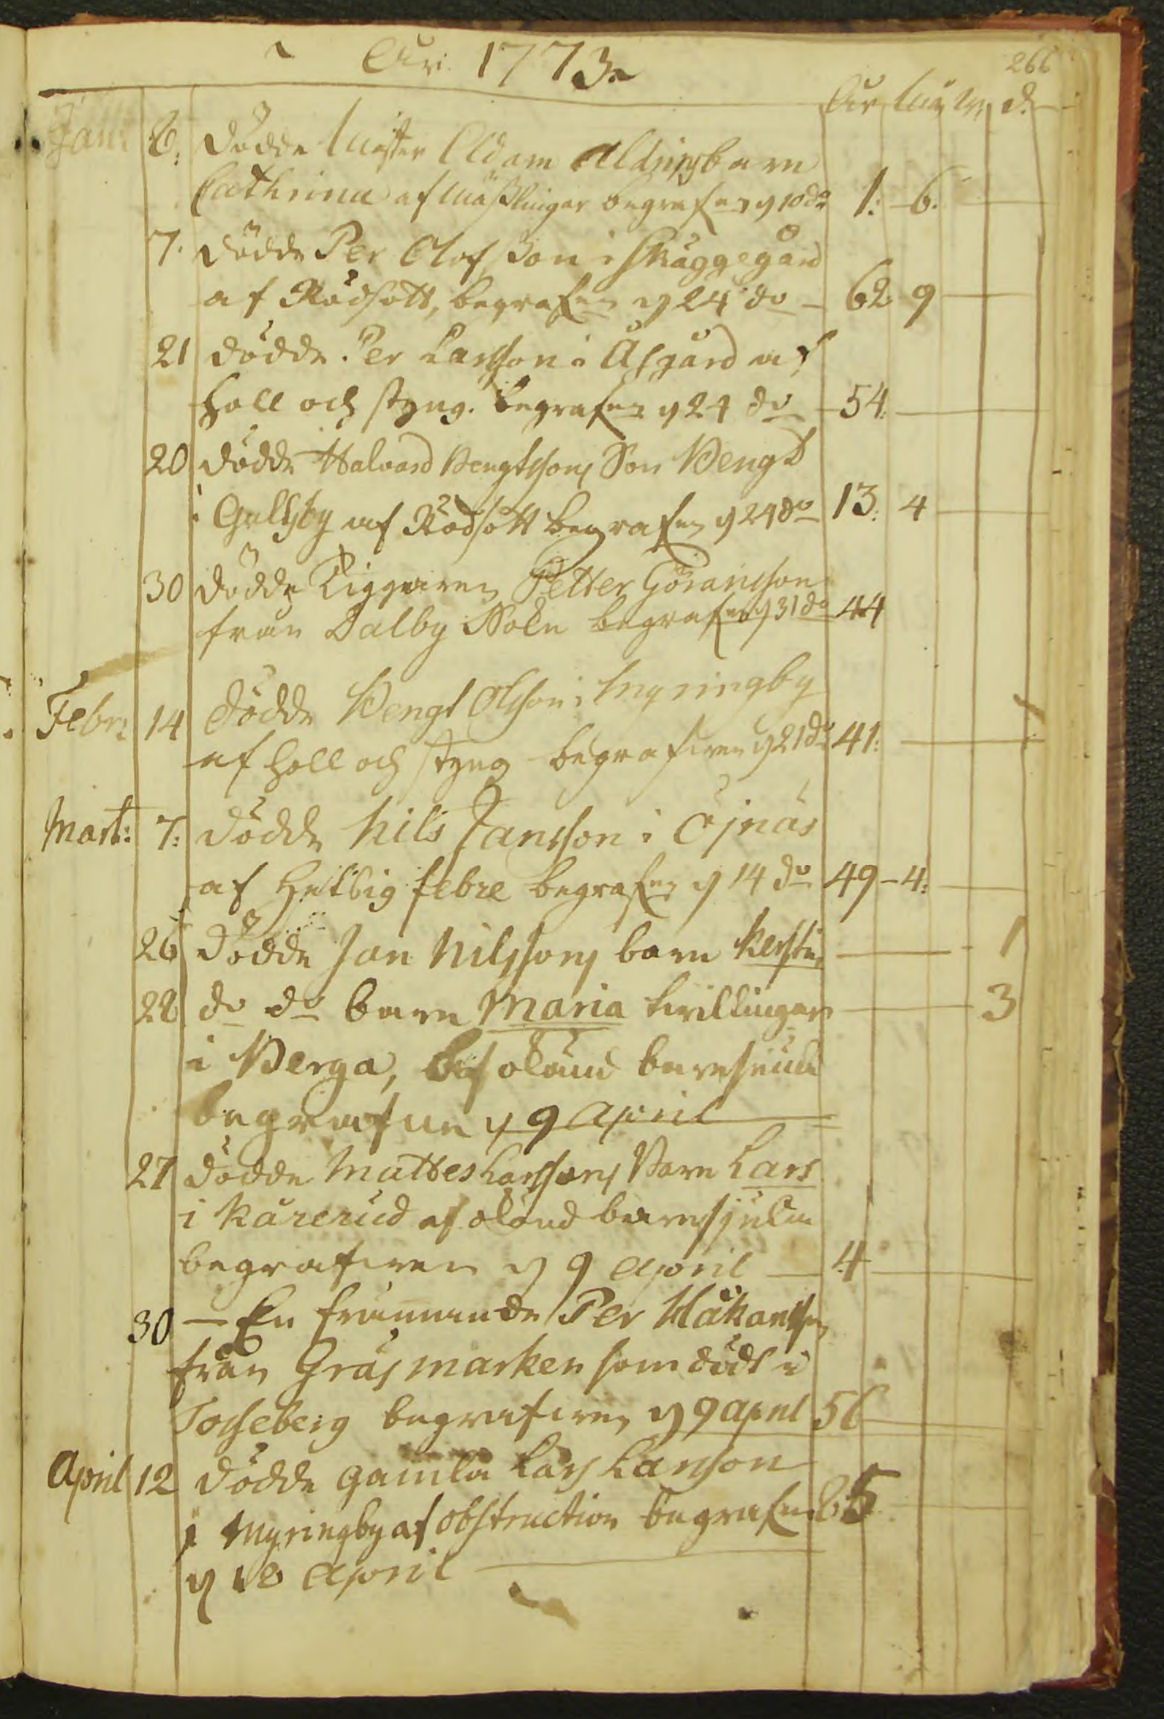 År 1773.
266
År Mån W. d.
Jan: 6. Dödde Mäster Adam Aldrins barn
Cathrina af Mäßlingar begrafen d 10 do 1: 6.
7. Dödde Per Olofsson i Skäggegård
af Rödsott, begrafen d 24 do 62 9
21 Dödde Per Larsson i Åsgård af
Håll och styng. begrafen d 24 do 54.
20 Dödde Halvard Bengtssons Son Bengt
i Gullsby af Rödsott begrafen d 24 do 13: 4
30 Dödde Tiggaren Petter Göransson
från Dalby Sokn begrafen d 31 do 44
Febr: 14 Dödde Bengt Olsson i Myringby
af Håll och styng begrafven d 21 do 41:
Mart: 7: Dödde Nils Jansson i Öjnäs
af Hetsig febre begrafen d 14 do 49 - 4:
26 Dödde Jan Nilssons barn Kerstin 1
28 do do barn Maria tvillingar 3
i Berga, af okänd barnsjuka
begrafne d 9 April
27 Dödde Mattes Larssons Barn Lars
i Kårerud af okänd barnsjuka
begrafven d 9 April 4
30 - En främmande Per Håkansson
från Gräsmarken som dödt i
Tosseberg begrafven d 9 April 56
April 12 Dödde gamla Lars Larsson
i Myringby af obstruction begrafen 85
d 18 April